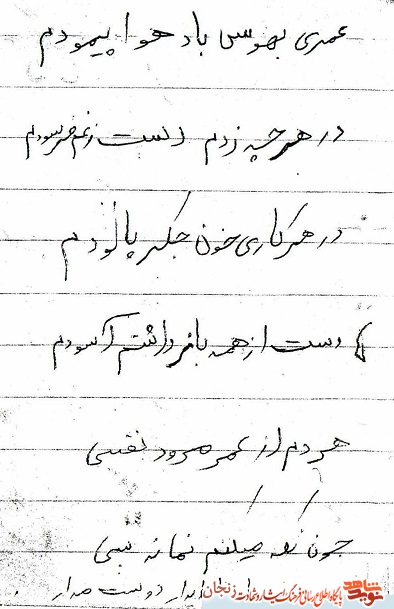 عمری بهوس باد هوا پیمودم
در هر چه زدم دست زغم فرسودم
در هر کاری خون جگر پالودم
دست از همه باز داشتم آسودم
هر دم از عمر میرود نفسی
چون نگه میکنم نمانده بسی
دوست مدار
نوید شاهد
پایگاه اطلاع رسانی فرهنگ ایثار و شهادت زنجان